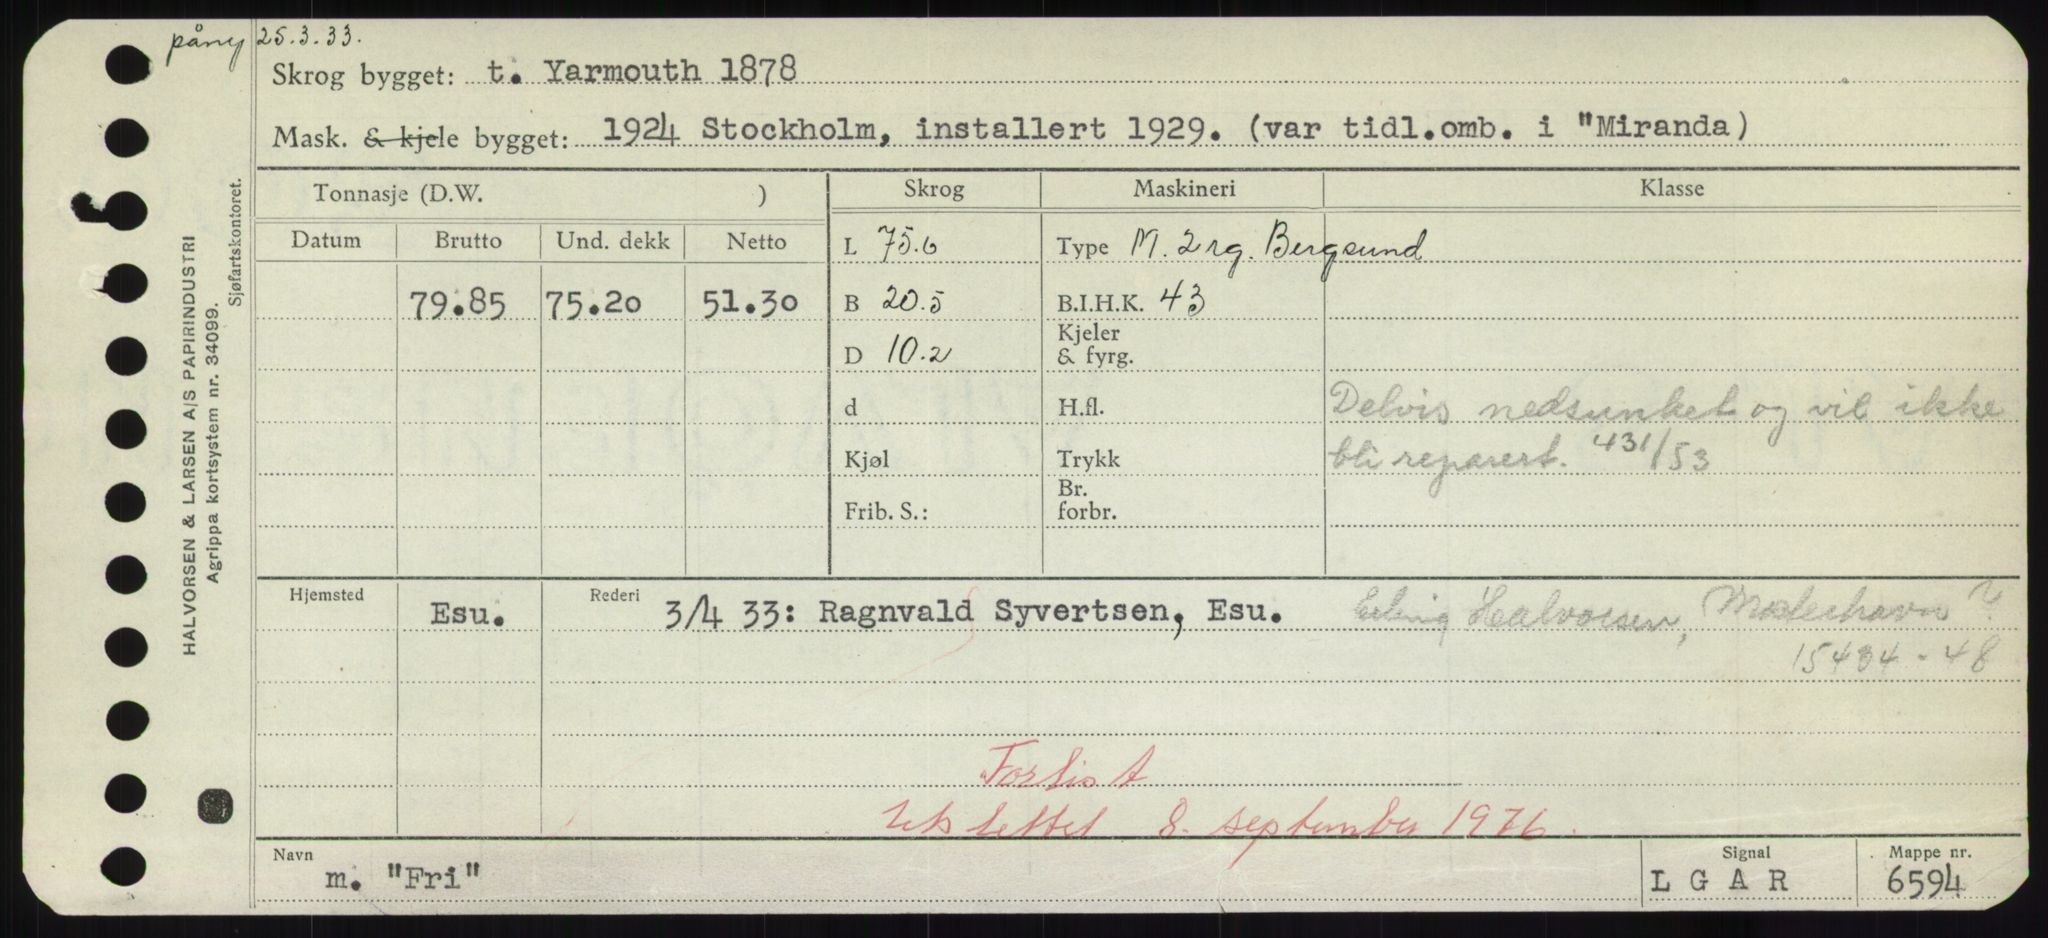 påny 25.3.33.
Skrog bygget: t. Yarmouth 1878
Mask. & kjele bygget: 1924 Stockholm, installert 1929. (var tidl.omb. i "Miranda)
Tonnasje (D.W. ) Skrog Maskineri Klasse
Datum Brutto Und. dekk Netto L 75.6 Type M. 2 sg. Bergsund
79.85 75.20 51.30 B 20.5 B.I.H.K. 43
D 10.2 Kjeler & fyrg.
d H.fl. Delvis nedsunket og vil ikke
Kjøl Trykk bli reparert. 431/53
Frib. S.: Br. forbr.
Hjemsted Esu. Rederi 3/4 33: Ragnvald Syvertsen, Esu. Erling Halvorsen, Mosterhavn ?
15484-48
Forlist
slettet 8. september 1976.
Navn m. "Fri" Signal LGAR Mappe nr. 6594
HALVORSEN & LARSEN A/S PAPIRINDUSTRI
Agrippa kortsystem nr. 34099.
Sjøfartskontoret.